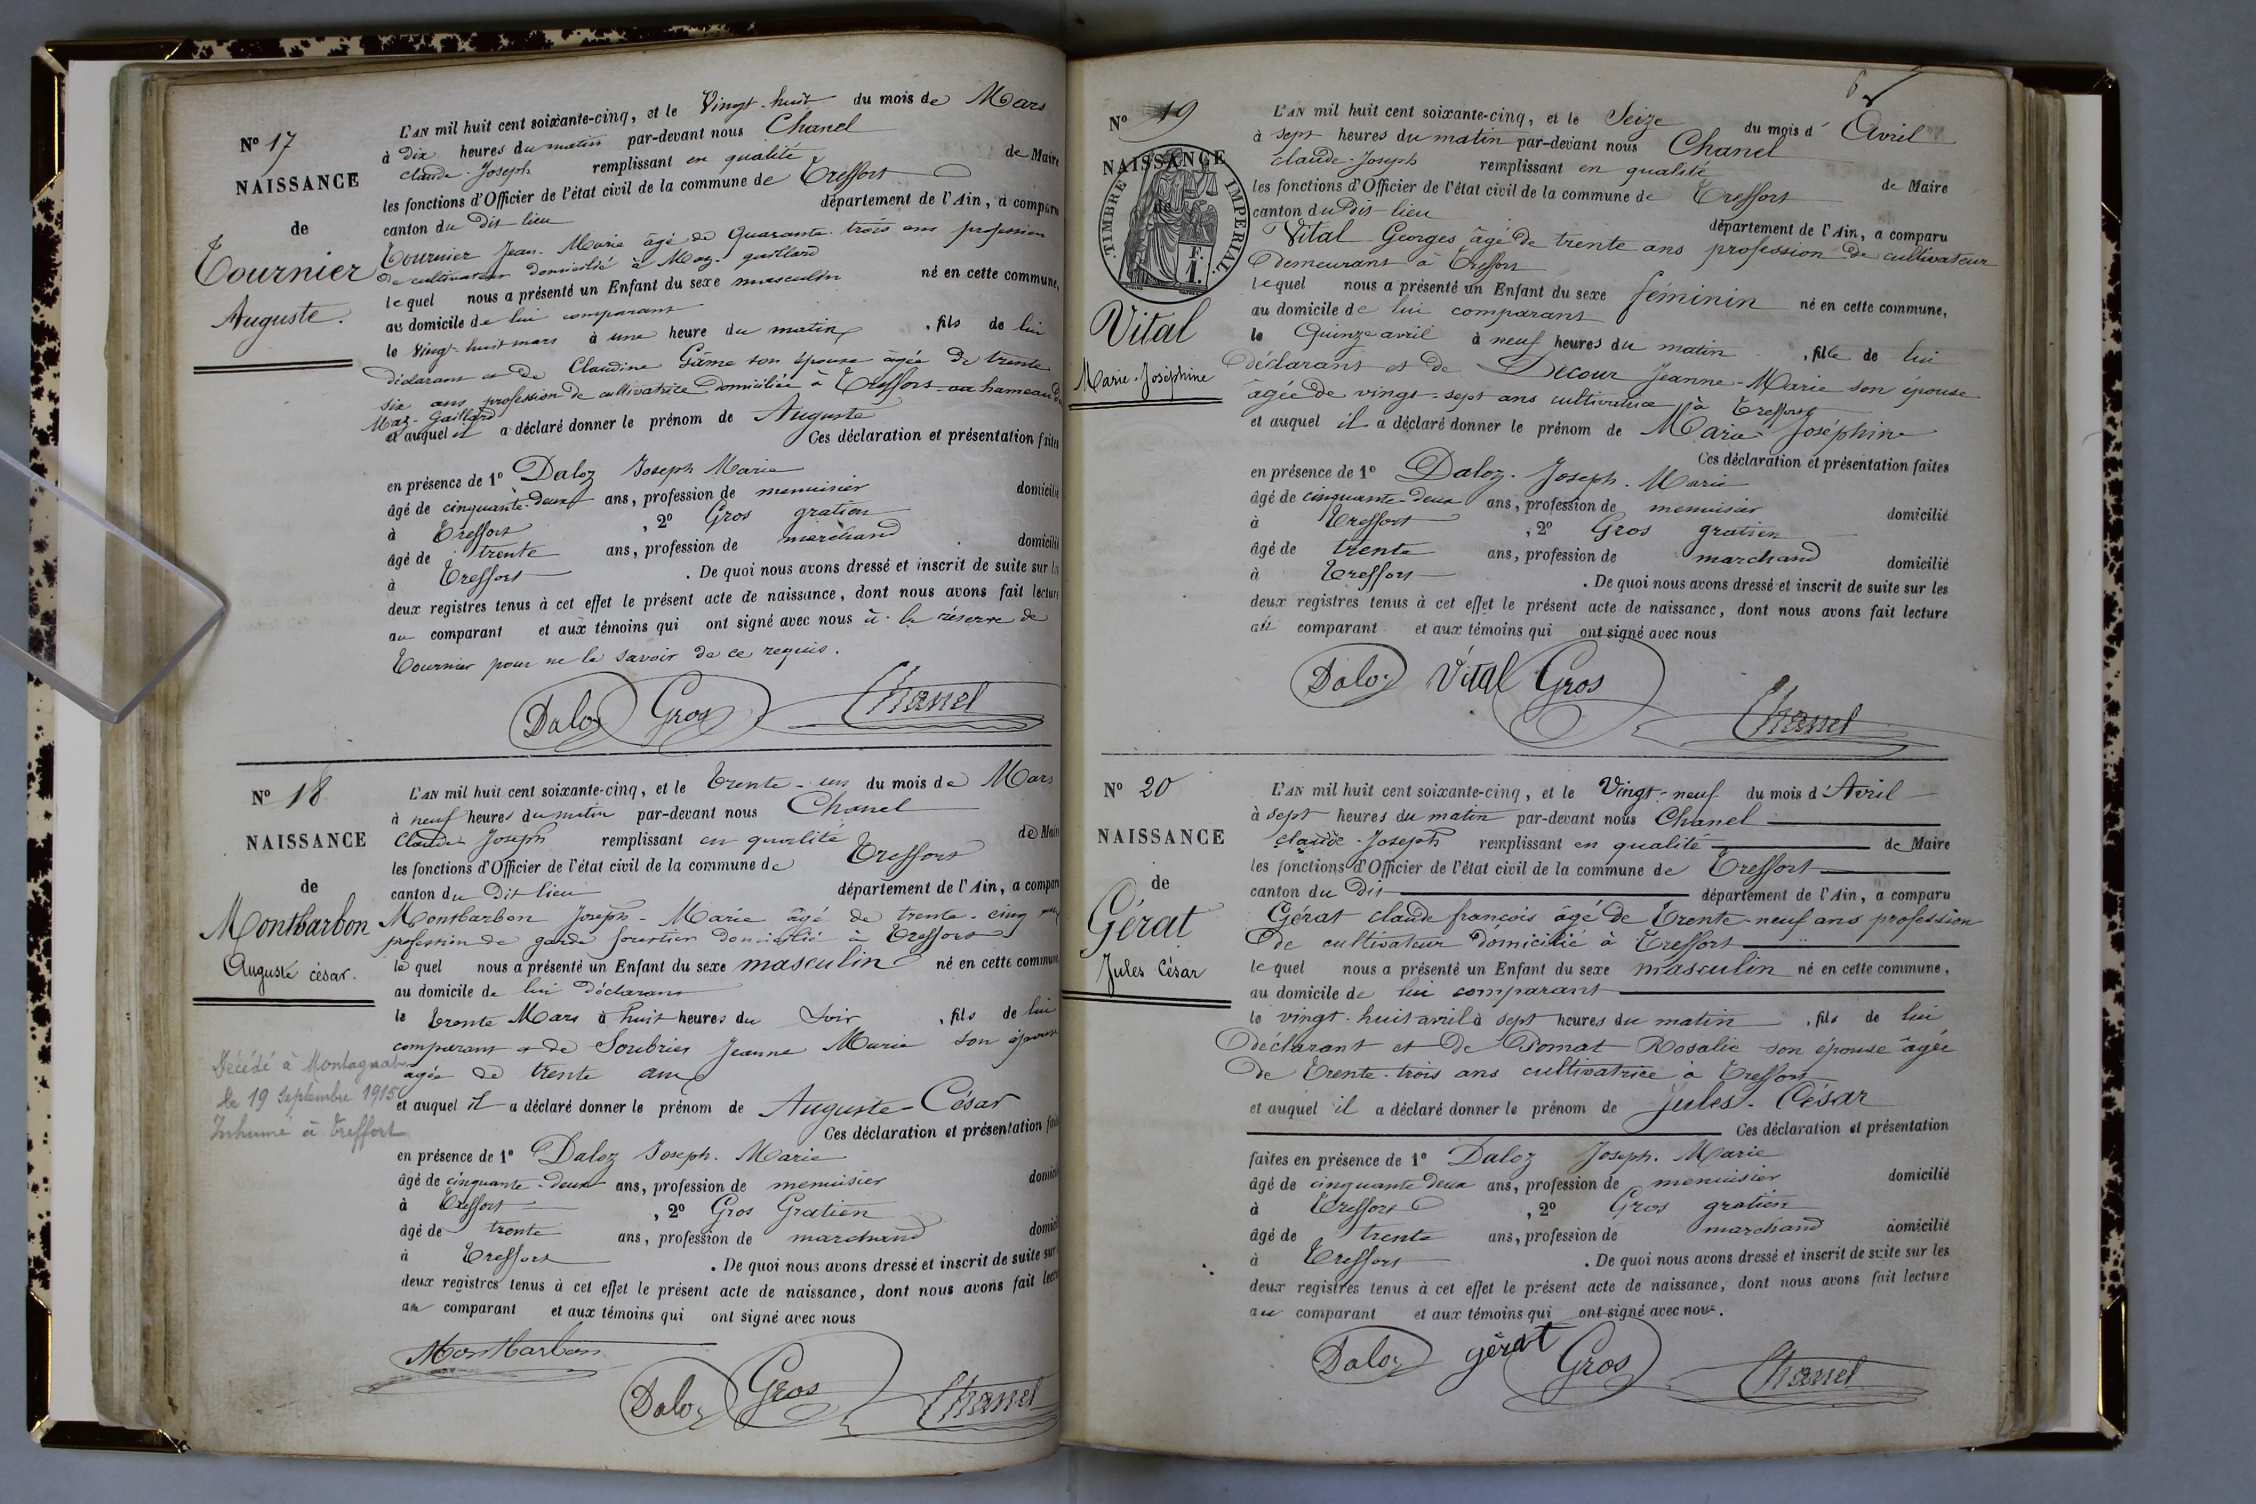 N° 17
NAISSANCE
de
Tournier
Auguste.
L'AN mil huit cent soixante-cinq, et le Vingt-huit du mois de Mars
à dix heures du matin par-devant nous Chanel
claude-Joseph remplissant en qualité de Maire
les fonctions d'Officier de l'état civil de la commune de Treffort
canton du Dit-lieu département de l'Ain, a comparu
Tournier Jean-Marie âgé de Quarante-trois ans profession
de cultivateur domicilié à Maz-gaillard
lequel nous a présenté un Enfant du sexe masculin né en cette commune,
au domicile de lui comparant
le vingt-huit mars à une heure du matin, fils de lui
déclarant et de Claudine Gâme son épouse âgée de trente
six ans profession de cultivatrice domiciliée à Treffort au hameau du
Maz-Gaillard
et auquel il a déclaré donner le prénom de Auguste
Ces déclaration et présentation faites
en présence de 1° Daloz Joseph Marie
âgé de cinquante-deux ans, profession de menuisier domicilié
à Treffort, 2° Gros gratien
âgé de trente ans, profession de marchand domicilié
à Treffort. De quoi nous avons dressé et inscrit de suite sur les
deux registres tenus à cet effet le présent acte de naissance, dont nous avons fait lecture
au comparant et aux témoins qui ont signé avec nous à la réserve de
Tournier pour ne le savoir de ce requis.
Daloz Gros Chanel
N° 18
NAISSANCE
de
Montbarbon
Auguste césar.
Décédé à Montagnat
le 19 Septembre 1915
Inhumé à Treffort
L'AN mil huit cent soixante-cinq, et le Trente-un du mois de Mars
à neuf heures du matin par-devant nous Chanel
Claude Joseph remplissant en qualité de Maire
les fonctions d'Officier de l'état civil de la commune de Treffort
canton du Dit lieu département de l'Ain, a comparu
Montbarbon Joseph-Marie âgé de trente-cinq ans
profession de garde forestier domicilié à Treffort
lequel nous a présenté un Enfant du sexe masculin né en cette commune
au domicile de lui déclarant
le trente Mars à huit heures du Soir, fils de lui
comparant et de Soubrier Jeanne Marie son épouse
agée de trente ans
et auquel il a déclaré donner le prénom de Auguste-César
Ces déclaration et présentation faites
en présence de 1° Daloz Joseph. Marie
âgé de cinquante-deux ans, profession de menuisier domicilié
à Treffort, 2° Gros Gratien
âgé de trente ans, profession de marchand domicilié
à Treffort. De quoi nous avons dressé et inscrit de suite sur
deux registres tenus à cet effet le présent acte de naissance, dont nous avons fait lecture
au comparant et aux témoins qui ont signé avec nous
Montbarbon
Daloz Gros Chanel
6
N° 19
NAISSANCE
de
TIMBRE IMPERIAL.
F.
1.
Vital
Marie-Joséphine
L'AN mil huit cent soixante-cinq, et le Seize du mois d' Avril
à sept heures du matin par-devant nous Chanel
claude-Joseph remplissant en qualité de Maire
les fonctions d'Officier de l'état civil de la commune de Treffort
canton du Dit-lieu département de l'Ain, a comparu
Vital Georges âgé de trente ans profession de cultivateur
demeurant à Treffort
lequel nous a présenté un Enfant du sexe féminin né en cette commune,
au domicile de lui comparant
le Quinze avril à neuf heures du matin, fille de lui
déclarant et de Decour Jeanne-Marie son épouse
âgée de vingt-sept ans cultivatrice à Treffort
et auquel il a déclaré donner le prénom de Marie-Joséphine
Ces déclaration et présentation faites
en présence de 1° Daloz. Joseph. Marie
âgé de cinquante-deux ans, profession de menuisier domicilié
à Treffort, 2° Gros gratien
âgé de trente ans, profession de marchand domicilié
à Treffort. De quoi nous avons dressé et inscrit de suite sur les
deux registres tenus à cet effet le présent acte de naissance, dont nous avons fait lecture
au comparant et aux témoins qui ont signé avec nous
Daloz Vital Gros
Chanel
N° 20
NAISSANCE
de
Gérat
Jules César
L'AN mil huit cent soixante-cinq, et le Vingt-neuf du mois d'Avril
à sept heures du matin par-devant nous Chanel
claude-Joseph remplissant en qualité de Maire
les fonctions d'Officier de l'état civil de la commune de Treffort
canton du Dit département de l'Ain, a comparu
Gérat claude françois âgé de Trente-neuf ans profession
de cultivateur domicilié à Treffort
lequel nous a présenté un Enfant du sexe masculin né en cette commune,
au domicile de lui comparant
le vingt-huit avril à sept heures du matin, fils de lui
déclarant et de Pomat Rosalie son épouse âgée
de Trente-trois ans cultivatrice à Treffort
et auquel il a déclaré donner le prénom de Jules-César
Ces déclaration et présentation
faites en présence de 1° Daloz Joseph. Marie
âgé de cinquante deux ans, profession de menuisier domicilié
à Treffort, 2° Gros gratien
âgé de trente ans, profession de marchand domicilié
à Treffort. De quoi nous avons dressé et inscrit de suite sur les
deux registres tenus à cet effet le présent acte de naissance, dont nous avons fait lecture
au comparant et aux témoins qui ont signé avec nous.
Daloz gérat Gros Chanel